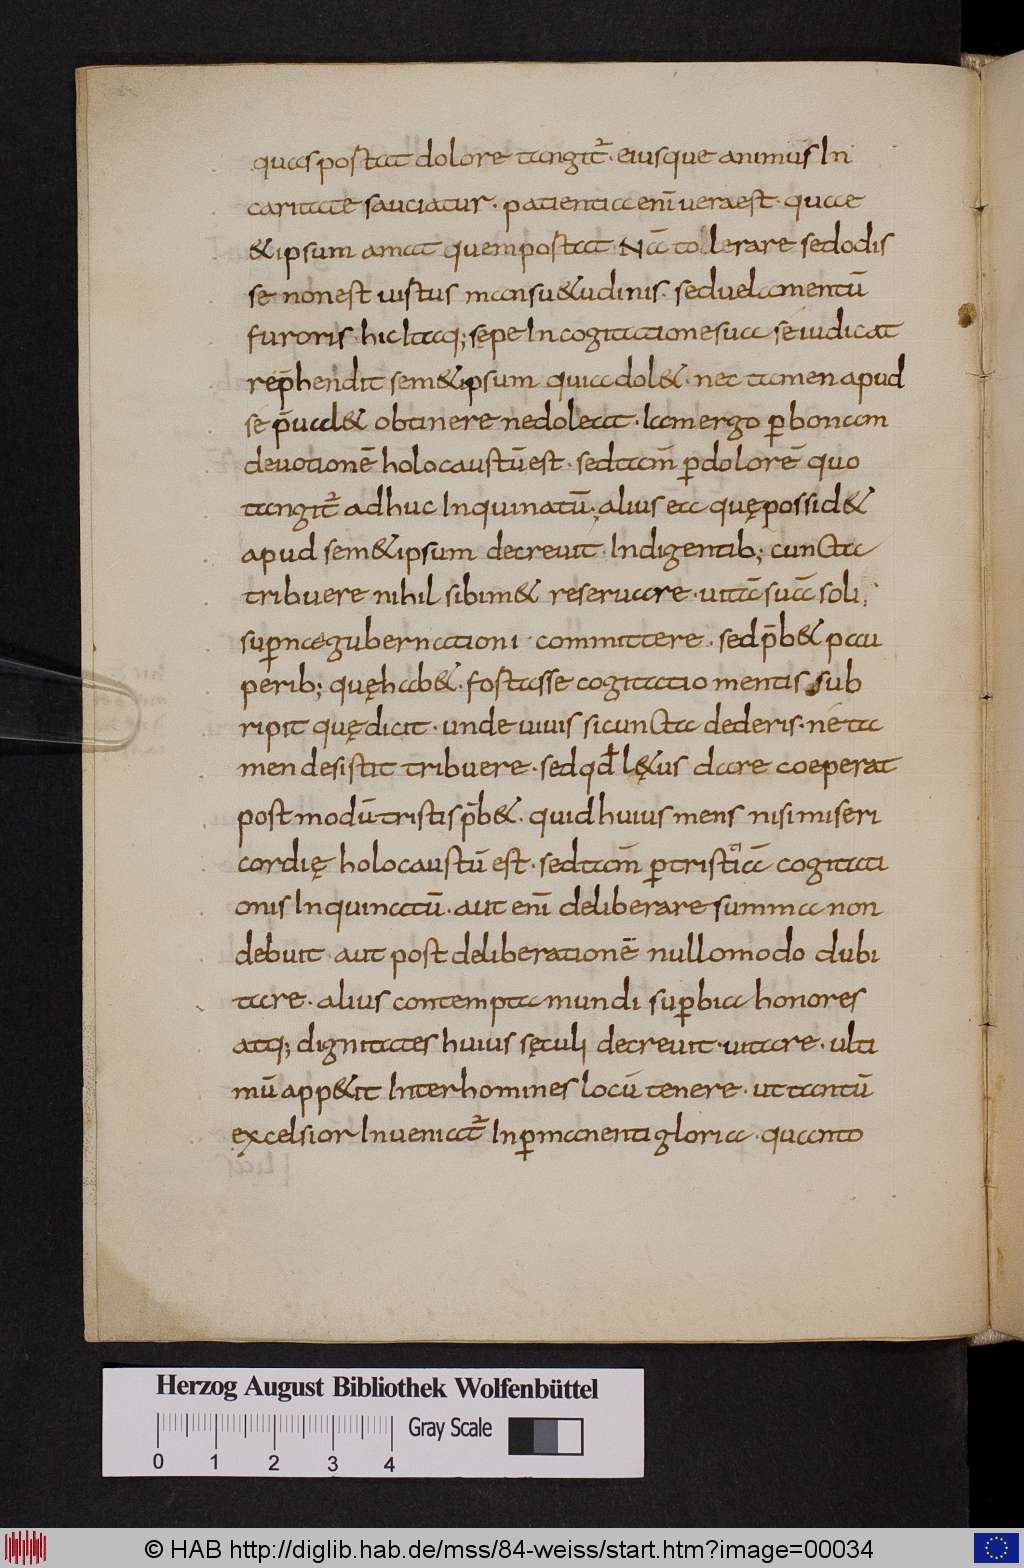 quas postat dolore tangit᷑ · eiusque animus In
caritate sauciatur · patientia enī uera est · quae
& ipsum amat quem postat · Nā tollerare sed odis
se non est uistus mansu&udinis · sed uelamentū
furoris · hic Itaq; sępe In cogitatione sua se iudicat
rep̄hendit sem&ipsum quia dol& · nec tamen apud
se p̄ual& obtinere ne doleat · Iam ergo ꝑ bonam
deuotionē holocaustū est · sed tam̄ ꝑ dolorē quo
tangit᷑ adhuc Inquinatū; alius ea quę possid&
apud sem&ipsum decreuit · Indigentib; cuncta
tribuere nihil sibim& reseruare · uitā suā soli
suꝑnae gubernationi · committere · sed p̄b& pau
perib; quę hab& · fostasse cogitatio mentis sub
ripit quę dicit · unde uiuis si cuncta dederis · ne ta
men desistit tribuere · sed qđ lę&us dare coeperat
post modū tristis p̄b& · quid huius mens nisi miseri
cordię holocaustū est · sed tam̄ ꝑ tristiā cogitati
onis Inquinatū · aut enī deliberare summa non
debuit · aut post deliberationē nullomodo dubi
tare · alius contempta mundi suꝑbia honores
atq; dignitates huius sęculi decreuit · uitare · ulti
mū app&it Inter homines locū tenere · ut tantū
excelsior Inueniat᷑ In ꝑmanenti gloria · quanto
Herzog August Bibliothek Wolfenbüttel
Gray Scale
0 1 2 3 4
© HAB http://diglib.hab.de/mss/84-weiss/start.htm?image=00034